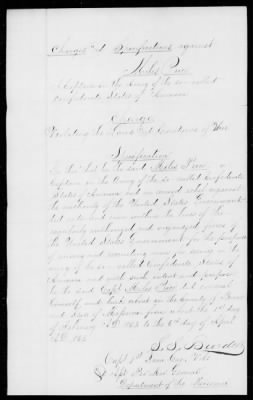 Charges and Specifications against
Miles Price
a Captain in the Army of the so-called
Confederate States of America
Charge
Violating the Laws and Customs of War
Specification
In this that he the said Miles Price, a
Captain in the Army of the so-called Confederate
States of America but in revolt against
the authority of the United States Government
did enter and come within the lines of the
regularly authorized and organized forces of
the United States Government for the purpose
of and recruiting men in the
army of the so-called Confederate States of
America and with such intent and purpose
he the said Capt Miles Price did conceal
himself and lurk about in the County of
and State of Missouri from about the 1st day
of February A.D. 1863 to the 6th day of April
A.D. 1863
Capt 1st Iowa Cav. Vols
Provost General
Department of the Missouri